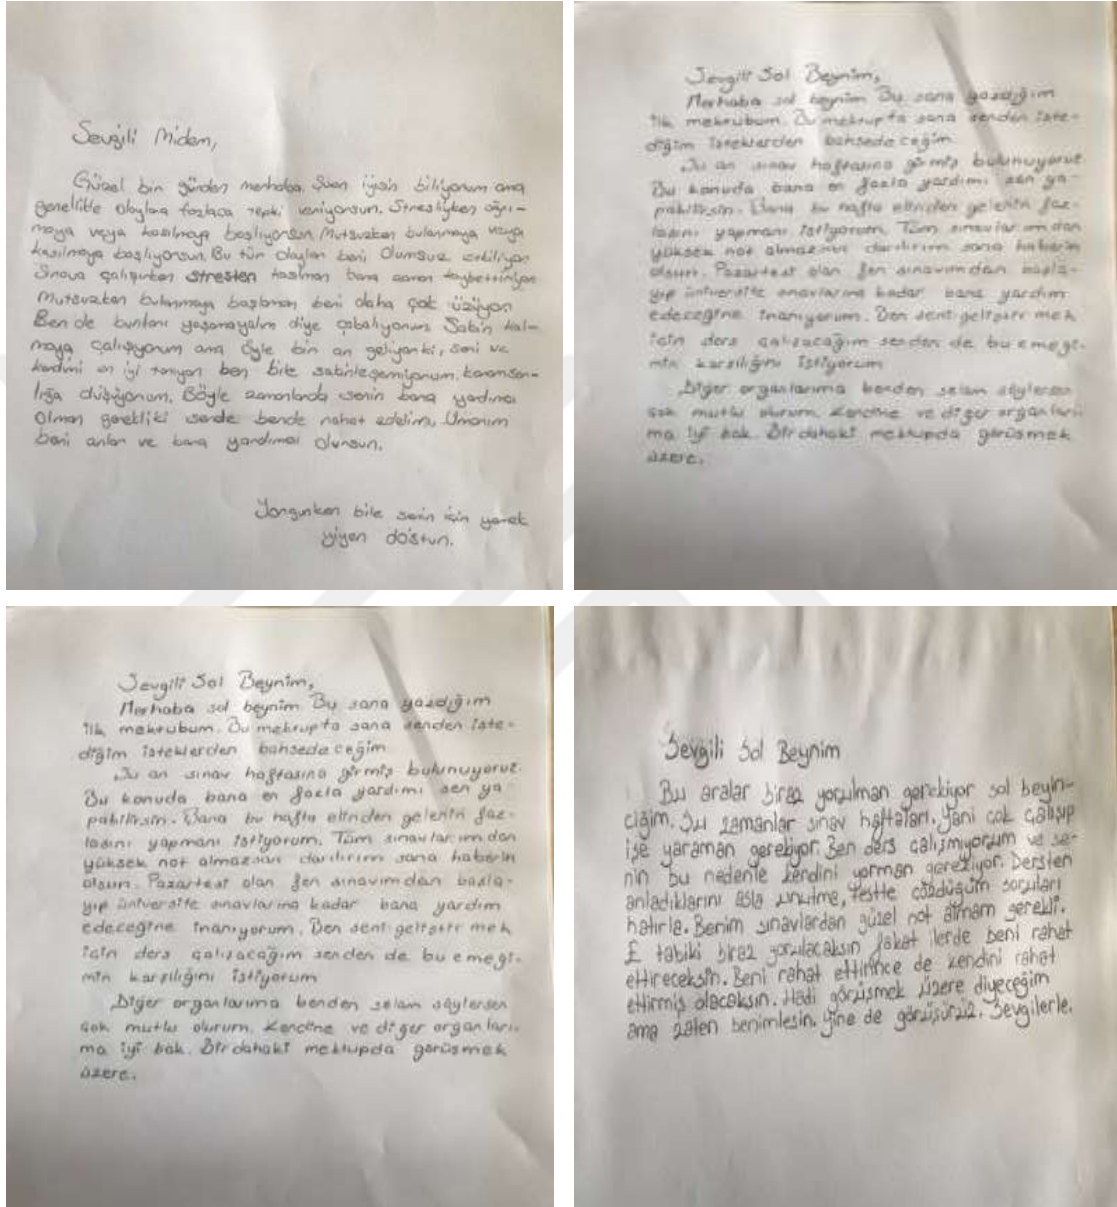 Sevgili Midem,
Güzel bir günden merhaba. Şuan iyisin biliyorum ama
genellikle olaylara fazlaca tepki veriyorsun. Stresliyken ağrı-
maya veya kasılmaya başlıyorsun. Mutsuzken bulanmaya veya
kasılmaya başlıyorsun. Bu tür olaylar beni olumsuz etkiliyor.
Sınava çalışırken stresten kasılman bana zaman kaybettiriyor.
Mutsuzken bulanmaya başlaman beni daha çok üzüyor.
Ben de bunları yaşamayalım diye çabalıyorum. Sabir kal-
maya çalışıyorum ama öyle bir an geliyor ki, seni ve
kendini en iyi tanıyan ben bile sakinleşemiyorum. karamsar-
lığa düşüyorum. Böyle zamanlarda senin bana yardımcı
olman gerekli ki sende bende rahat edelim. Umarım
beni anlar ve bana yardımcı olursun.
Yorgunken bile senin için yemek
yiyen dostun.
Sevgili Sol Beynim,
Merhaba sol beynim Bu sana yazdığım
ilk mektubum. Bu mektupta sana senden iste-
diğim isteklerden bahsedeceğim.
Şu an sınav haftasına girmiş bulunuyoruz.
Bu konuda bana en fazla yardımı sen ya-
pabilirsin. Bana bu hafta elinden gelenin faz-
lasını yapmanı istiyorum. Tüm sınavlarımdan
yüksek not almazsak darılırım sana haberin
olsun. Pazartesi olan fen sınavımdan başla-
yıp üniversite sınavlarına kadar bana yardım
edeceğine inanıyorum. Ben seni geliştirmek
için ders çalışacağım senden de bu emeği-
min karşılığını istiyorum
Diğer organlarıma benden selam söylersen
çok mutlu olurum. Kendine ve diğer organları-
ma iyi bak. Bir dahaki mektupda görüşmek
üzere.
Sevgili Sol Beynim,
Merhaba sol beynim Bu sana yazdığım
ilk mektubum. Bu mektupta sana senden iste-
diğim isteklerden bahsedeceğim
Şu an sınav haftasına girmiş bulunuyoruz.
Bu konuda bana en fazla yardımı sen ya
pabilirsin. Bana bu hafta elinden gelenin faz-
lasını yapmanı istiyorum. Tüm sınavlarımdan
yüksek not almazsak darılırım sana haberin
olsun. Pazartesi olan fen sınavımdan başla-
yıp üniversite sınavlarına kadar bana yardım
edeceğine inanıyorum. Ben seni geliştirmek
için ders çalışacağım senden de bu emeği-
min karşılığını istiyorum
Diğer organlarıma benden selam söylersen
çok mutlu olurum. Kendine ve diğer organları-
ma iyi bak. Bir dahaki mektupda görüşmek
üzere.
Sevgili Sol Beynim
Bu aralar biraz yorulman gerekiyor sol beyin-
ciğim. Şu zamanlar sınav haftaları. Yani çok çalışıp
işe yaraman gerekiyor. Ben ders çalışmıyorum ve se-
nin bu nedenle kendini yorman gerekiyor. Dersten
anladıklarını asla unutma, testte çözdüğüm soruları
hatırla. Benim sınavlardan güzel not almam gerekli.
E tabiki biraz yorulacaksın fakat ilerde beni rahat
ettireceksin. Beni rahat ettirince de kendini rahat
ettirmiş olacaksın. Hadi görüşmek üzere diyeceğim
ama zaten benimlesin. Yine de görüşürüz. Sevgilerle.